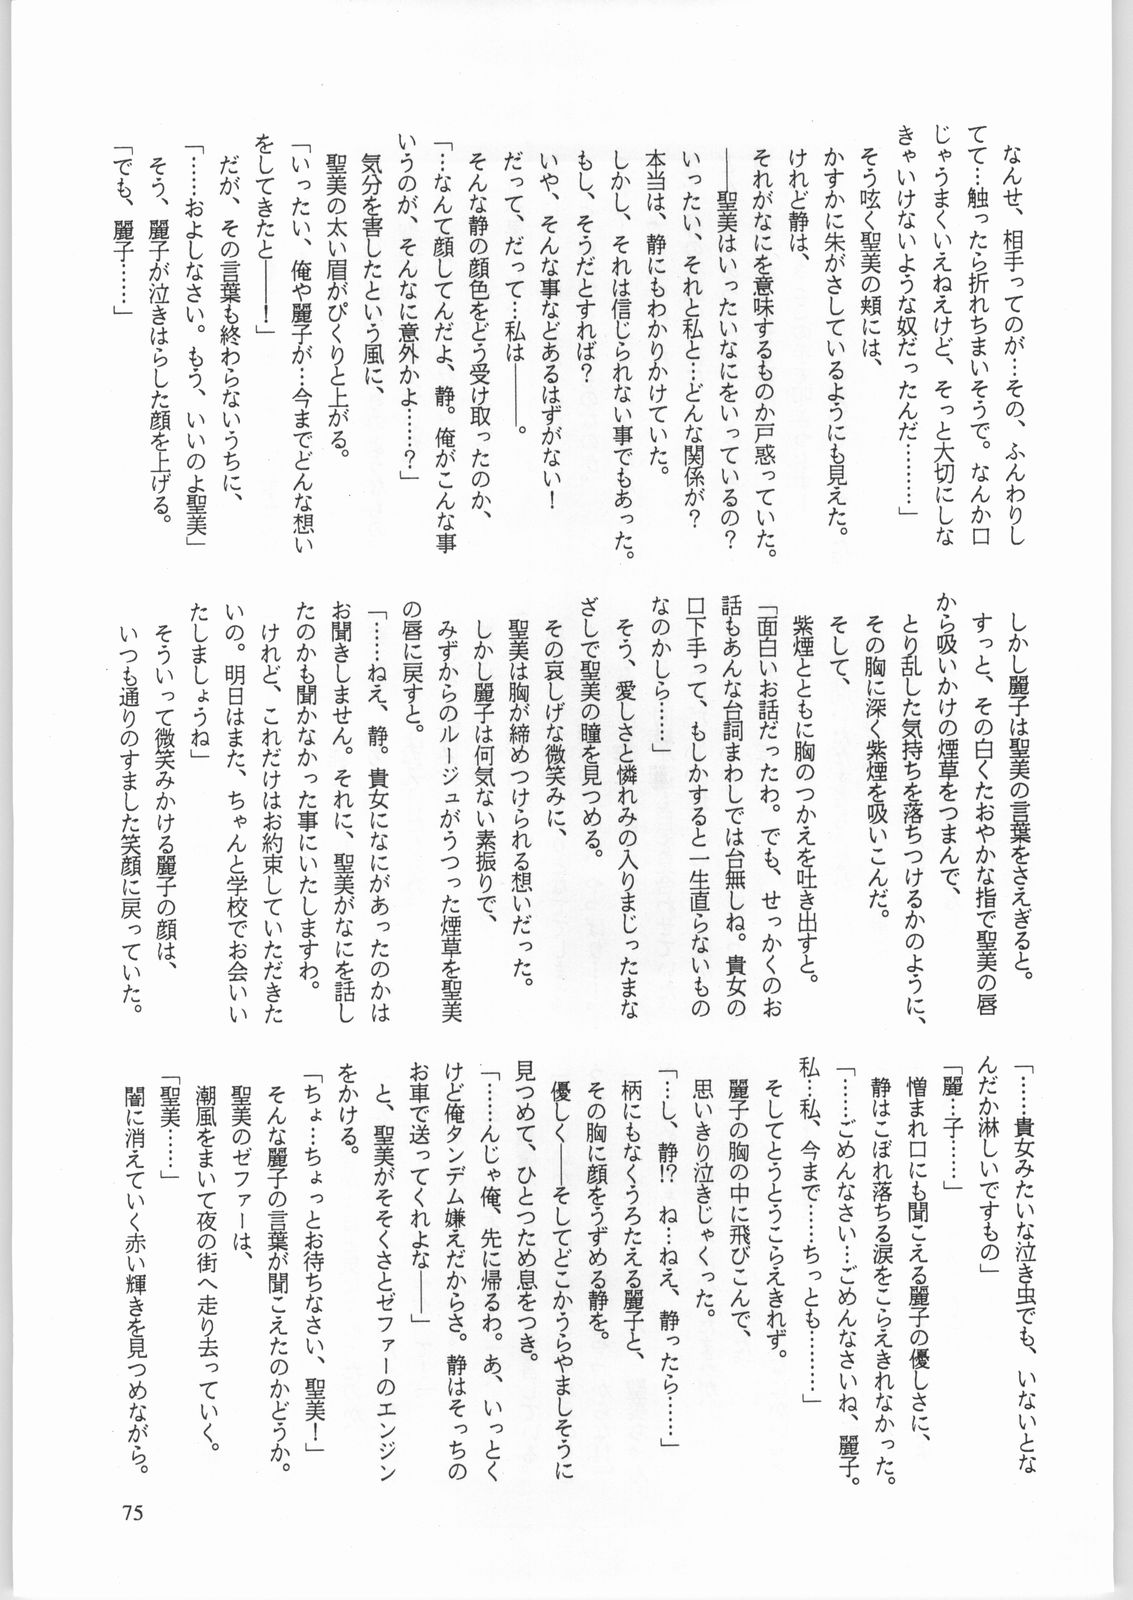 なんせ、相手ってのが…その、ふんわりし
てて…触ったら折れちまいそうで。なんか口
じゃうまくいえねえけど、そっと大切にしな
きゃいけないような奴だったんだ………」
そう呟く聖美の頬には、
かすかに朱がさしているようにも見えた。
けれど静は、
それがなにを意味するものか戸惑っていた。
――聖美はいったいなにをいっているの？
いったい、それと私と…どんな関係が？
本当は、静にもわかりかけていた。
しかし、それは信じられない事でもあった。
もし、そうだとすれば？
いや、そんな事などあるはずがない！
だって、だって…私は――。
そんな静の顔色をどう受け取ったのか、
「…なんて顔してんだよ、静。俺がこんな事
いうのが、そんなに意外かよ……？」
気分を害したという風に、
聖美の太い眉がぴくりと上がる。
「いったい、俺や麗子が…今までどんな想い
をしてきたと――！」
だが、その言葉も終わらないうちに、
「……およしなさい。もう、いいのよ聖美」
そう、麗子が泣きはらした顔を上げる。
「でも、麗子……」
しかし麗子は聖美の言葉をさえぎると。
すっと、その白くたおやかな指で聖美の唇
から吸いかけの煙草をつまんで、
とり乱した気持ちを落ちつけるかのように、
その胸に深く紫煙を吸いこんだ。
そして、
紫煙とともに胸のつかえを吐き出すと。
「面白いお話だったわ。でも、せっかくのお
話もあんな台詞まわしでは台無しね。貴女の
口下手って、もしかすると一生直らないもの
なのかしら……」
そう、愛しさと憐れみの入りまじったまな
ざしで聖美の瞳を見つめる。
その哀しげな微笑みに、
聖美は胸が締めつけられる想いだった。
しかし麗子は何気ない素振りで、
みずからのルージュがうつった煙草を聖美
の唇に戻すと。
「……ねえ、静。貴女になにがあったのかは
お聞きしません。それに、聖美がなにを話し
たのかも聞かなかった事にいたしますわ。
けれど、これだけはお約束していただきた
いの。明日はまた、ちゃんと学校でお会いい
たしましょうね」
そういって微笑みかける麗子の顔は、
いつも通りのすました笑顔に戻っていた。
「……貴女みたいな泣き虫でも、いないとな
んだか淋しいですもの」
「麗…子……」
憎まれ口にも聞こえる麗子の優しさに、
静はこぼれ落ちる涙をこらえきれなかった。
「……ごめんなさい…ごめんなさいね、麗子。
私…私、今まで……ちっとも………」
そしてとうとうこらえきれず。
麗子の胸の中に飛びこんで、
思いきり泣きじゃくった。
「…し、静!?　ね…ねえ、静ったら……」
柄にもなくうろたえる麗子と、
その胸に顔をうずめる静を。
優しく――そしてどこかうらやましそうに
見つめて、ひとつため息をつき。
「……んじゃ俺、先に帰るわ。あ、いっとく
けど俺タンデム嫌えだからさ。静はそっちの
お車で送ってくれよな――」
と、聖美がそそくさとゼファーのエンジン
をかける。
「ちょ…ちょっとお待ちなさい、聖美！」
そんな麗子の言葉が聞こえたのかどうか。
聖美のゼファーは、
潮風をまいて夜の街へ走り去っていく。
「聖美……」
闇に消えていく赤い輝きを見つめながら。
75